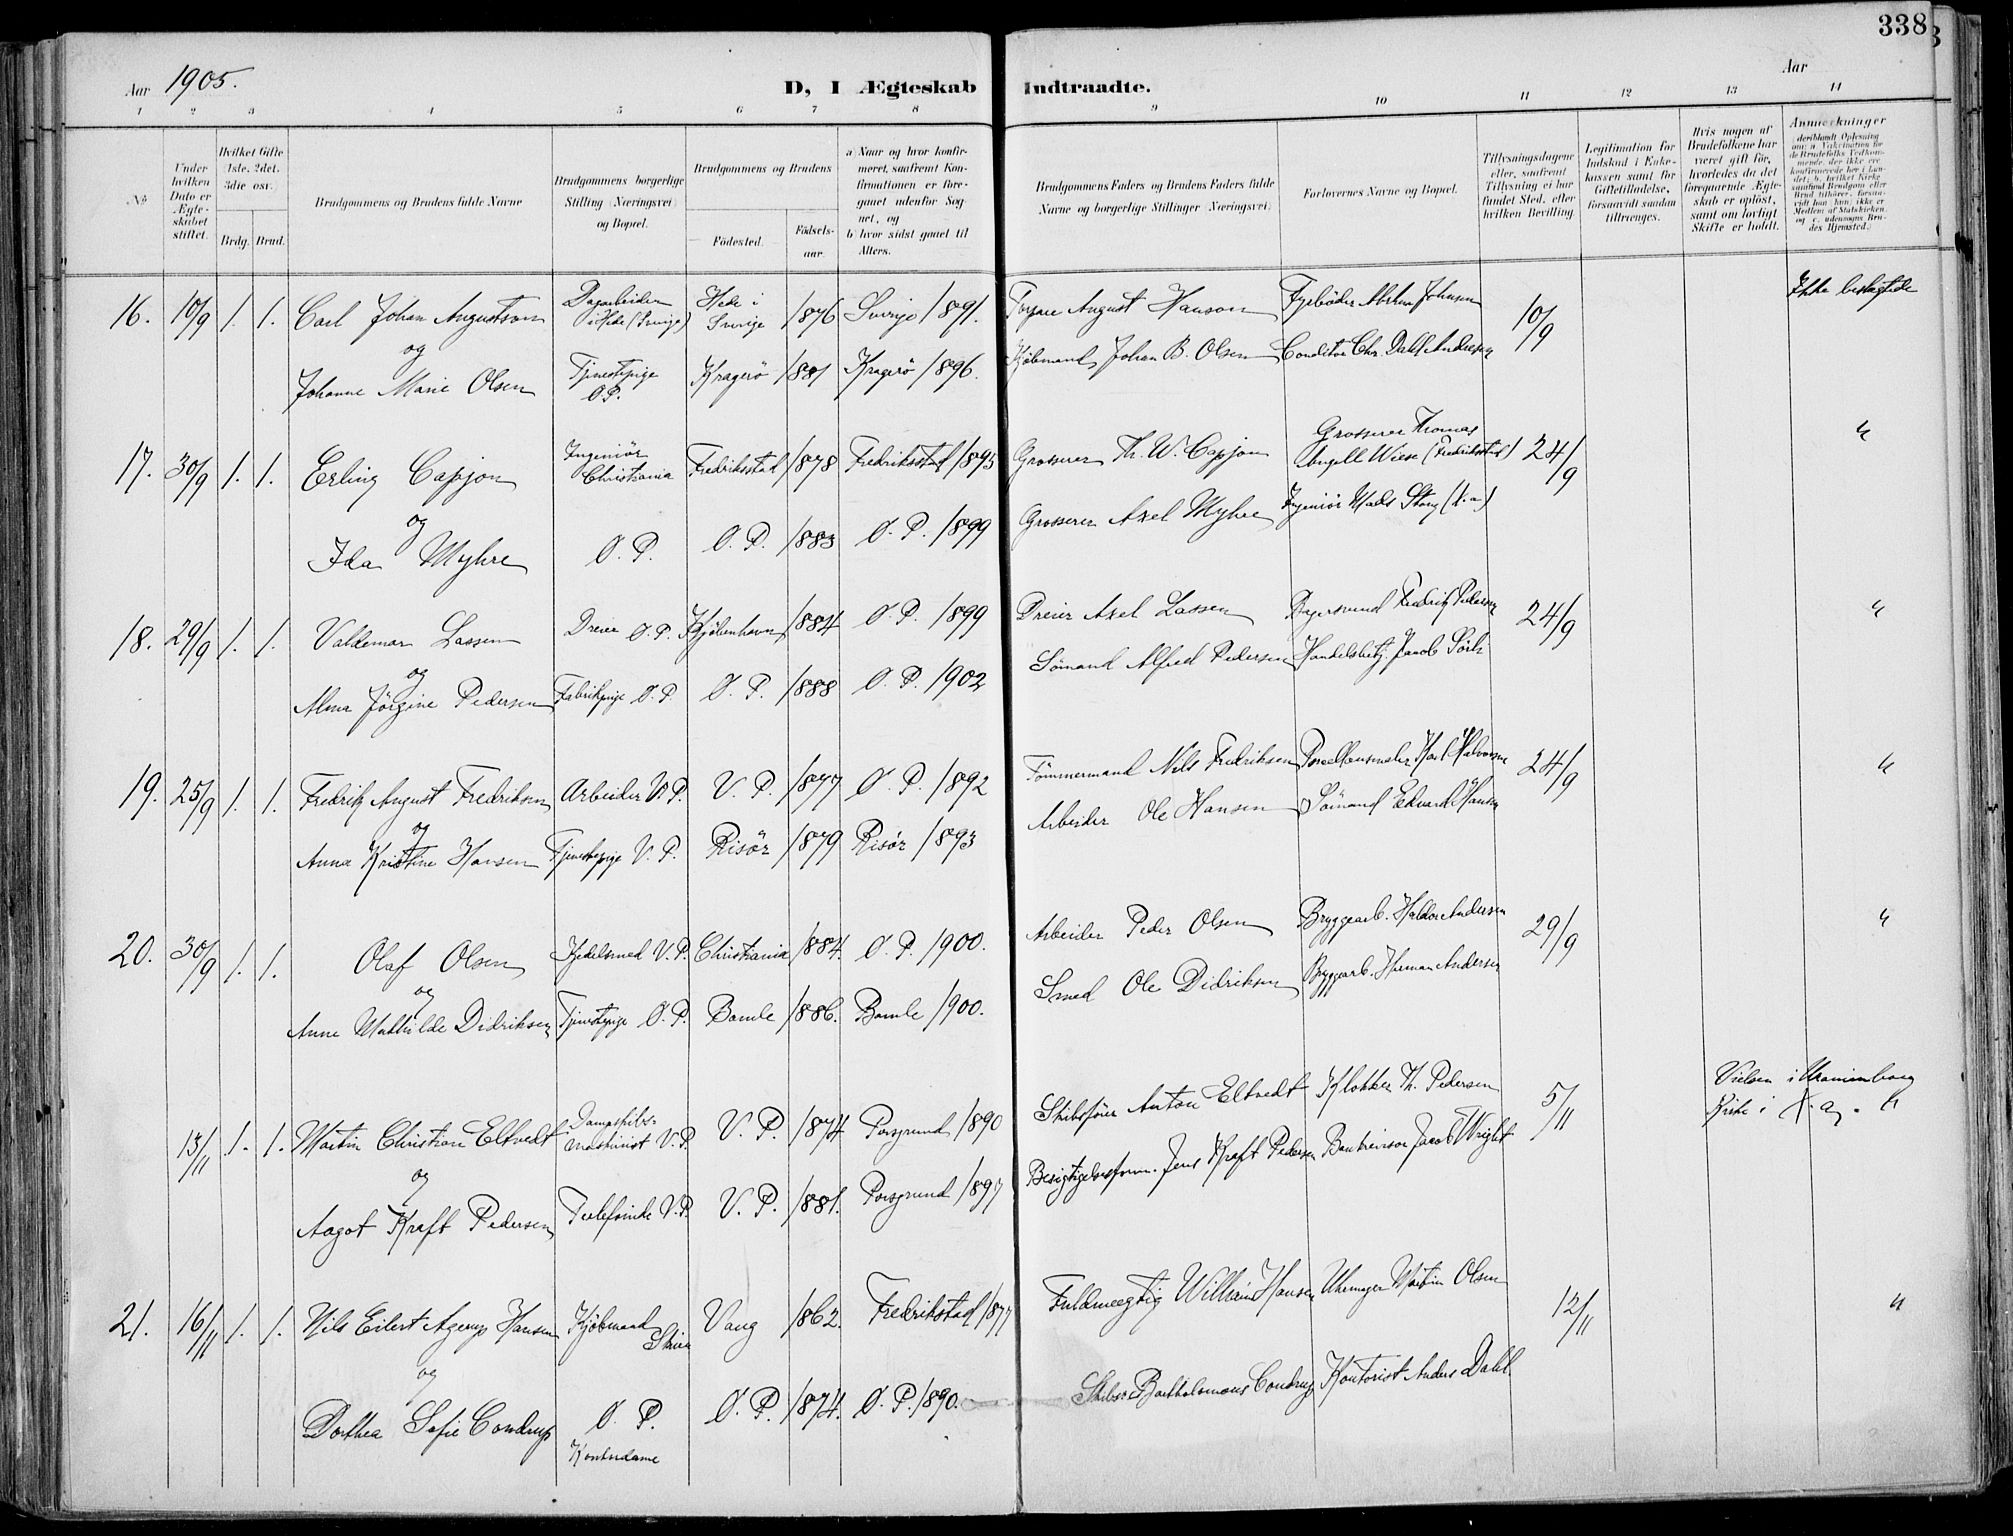 338
Aar 1905.
D, I Ægteskab Indtraadte.
Aar
1 2 3 4 5 6 7 8 9 10 11 12 13 14
No
Under hvilken Dato er Ægteskabet stiftet.
Hvilket Gifte 1ste. 2det. 3die osv.
Brdg. Brud.
Brudgommens og Brudens fulde Navne
Brudgommens borgerlige Stilling (Næringsvei) og Bopæl.
Brudgommens og Brudens
Födested.
Födselsaar.
a) Naar og hvor konfirmeret, saafremt Konfirmationen er foregaaet udenfor Sognet, og
b) hvor sidst gaaet til Alters.
Brudgommens Faders og Brudens Faders fulde Navne og borgerlige Stillinger (Næringsvei)
Forlovernes Navne og Bopæl.
Tillysningsdagene eller, saafremt Tillysning ei har fundet Sted, efter hvilken Bevilling
Legitimation for Indskud i Enkekassen samt for Giftetilladelse, forsaavidt saadan tiltrænges.
Hvis nogen af Brudefolkene har været gift för, hvorledes da det foregaaende Ægteskab er oplöst, samt om lovligt Skifte er holdt.
Anmærkninger
16. 10/9 1. 1. Carl Johan Augustson Dagarbeider i Hede (Sverige) Hede i Sverige 1876 Sverige 1891. August Hanson Fyrböder Johnsen 10/9 Ikke beslægtede
og
Johanne Marie Olsen Tjenestepige Ø.P. Kragerö 1881 Kragerö 1896. Kjöbmand Johan B. Olsen Conditor Chr. Dahl Andersen
17. 30/9 1. 1. Erling Capjon Ingeniör Christiania Fredriksstad 1878 Fredriksstad 1895 Grosserer Th. W. Capjon Grosserer Thomas Angell Wiese (Fredriksstad) 24/9 "
og
Ida Myhre Ø. P. Ø. P. 1883 Ø. P. 1899 Grosserer Axel Myhre Ingeniör Mads
18. 29/9 1. 1. Valdemar Lassen Dreier Ø.P. Kjöbenhavn 1884 Ø. P. 1899 Dreier Axel Lassen Fredrik Pedersen 24/9 "
og
Alma Jörgine Pedersen Fabrikpige Ø.P. Ø. P. 1888 Ø. P. 1902 Sömand Alfred Pedersen Handelsbetj. Jacob
19. 25/9 1. 1. Fredrik August Fredriksen Arbeider V.P. V. P. 1877 Ø. P. 1892 Tömmermand Nils Fredriksen Porcellænsmaler Karl Halvorsen 24/9 "
og
Anna Kristine Hansen Tjenestepige V. P. Risör 1879 Risör 1893 Arbeider Ole Hansen Sömand Edvard Hansen
20. 30/9 1. 1. Olaf Olsen Kjedelsmed V.P. Christiania 1884. Ø. P. 1900. Arbeider Peder Olsen Bryggearb. Haldor Andersen 29/9 "
og
Anne Mathilde Didriksen Tjenestepige Ø.P. Bamle 1886. Bamle 1900. Smed Ole Didriksen Bryggearb. Herman Andersen
13/11 1. 1. Martin Christian Eltvedt Dampskibs-maskinist V.P. V. P. 1874 Porsgrund 1890 Skibsförer Anton Eltvedt Klokker Th. Pedersen 5/11 Vielsen i Uranienborg Kirke i X.a.
og
Aagot Kraft Pedersen Telefonike V.P. V. P. 1881. Porsgrund 1897 Besigtigelsesform. Jens Kraft Pedersen Bankrevisor Jacob Wright
21. 16/11 1. 1. Nils Eilert Agerup Hansen Kjöbmand Skien Vang 1862. Fredrikstad 1877 Fuldmægtig William Hansen Uhrmager Martin Olsen 12/11 "
og
Dorthea Sofie Condrup Ø. P. Kontordame Ø. P. 1874. Ø. P. 1890. Skibsr. Bartholomæus Condrup Kontorist Anders Dahl